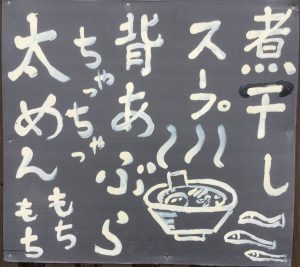 煮干し
スープ
背あぶら
ちゃっちゃっ
太めん
もちもち